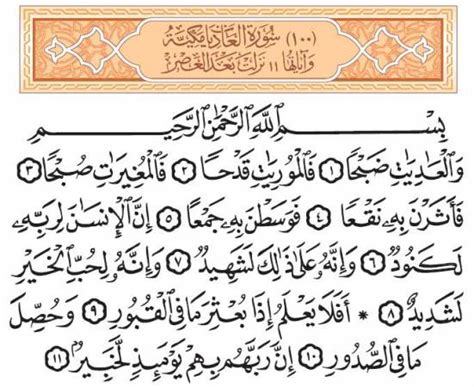 (١٠٠) سُورَةُ العَادِيَاتِ مَكِّيَّة
وَآيَاتُهَا ١١ نَزَلَتْ بَعْدَ العَصْرِ
بِسْمِ ٱللَّهِ ٱلرَّحْمَٰنِ ٱلرَّحِيمِ
وَٱلْعَٰدِيَٰتِ ضَبْحًا ١ فَٱلْمُورِيَٰتِ قَدْحًا ٢ فَٱلْمُغِيرَٰتِ صُبْحًا ٣
فَأَثَرْنَ بِهِۦ نَقْعًا ٤ فَوَسَطْنَ بِهِۦ جَمْعًا ٥ إِنَّ ٱلْإِنسَٰنَ لِرَبِّهِۦ
لَكَنُودٌ ٦ وَإِنَّهُۥ عَلَىٰ ذَٰلِكَ لَشَهِيدٌ ٧ وَإِنَّهُۥ لِحُبِّ ٱلْخَيْرِ
لَشَدِيدٌ ٨ * أَفَلَا يَعْلَمُ إِذَا بُعْثِرَ مَا فِى ٱلْقُبُورِ ٩ وَحُصِّلَ
مَا فِى ٱلصُّدُورِ ١٠ إِنَّ رَبَّهُم بِهِمْ يَوْمَئِذٍ لَّخَبِيرٌۢ ١١